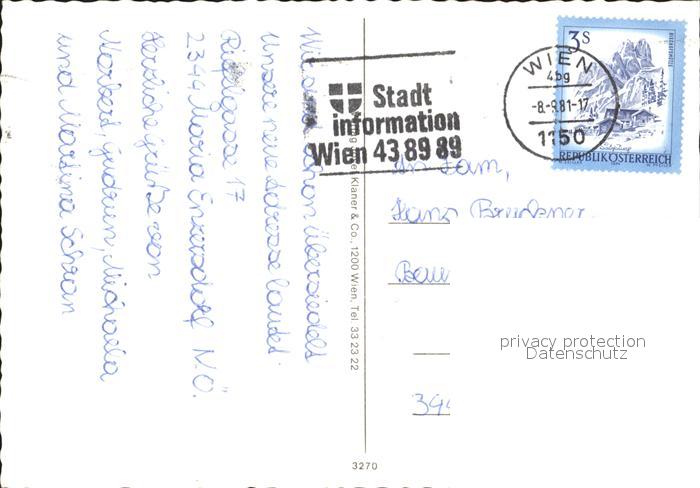 Wir sind schon übersiedelt
Unsere neue Adresse lautet:
Rieglgasse 17
2344 Maria Enzersdorf N.Ö.
Herzliche Grüße von
Norbert, Gudrun, Michaela
und Martina Schran
Stadt
information
Wien 43 89 89
WIEN
-8.-9.81-17
1150
3 S
REPUBLIK ÖSTERREICH
An Fam,
Hans
Klaner & Co., 1200 Wien, Tel. 33 23 22
privacy protection
Datenschutz
3270